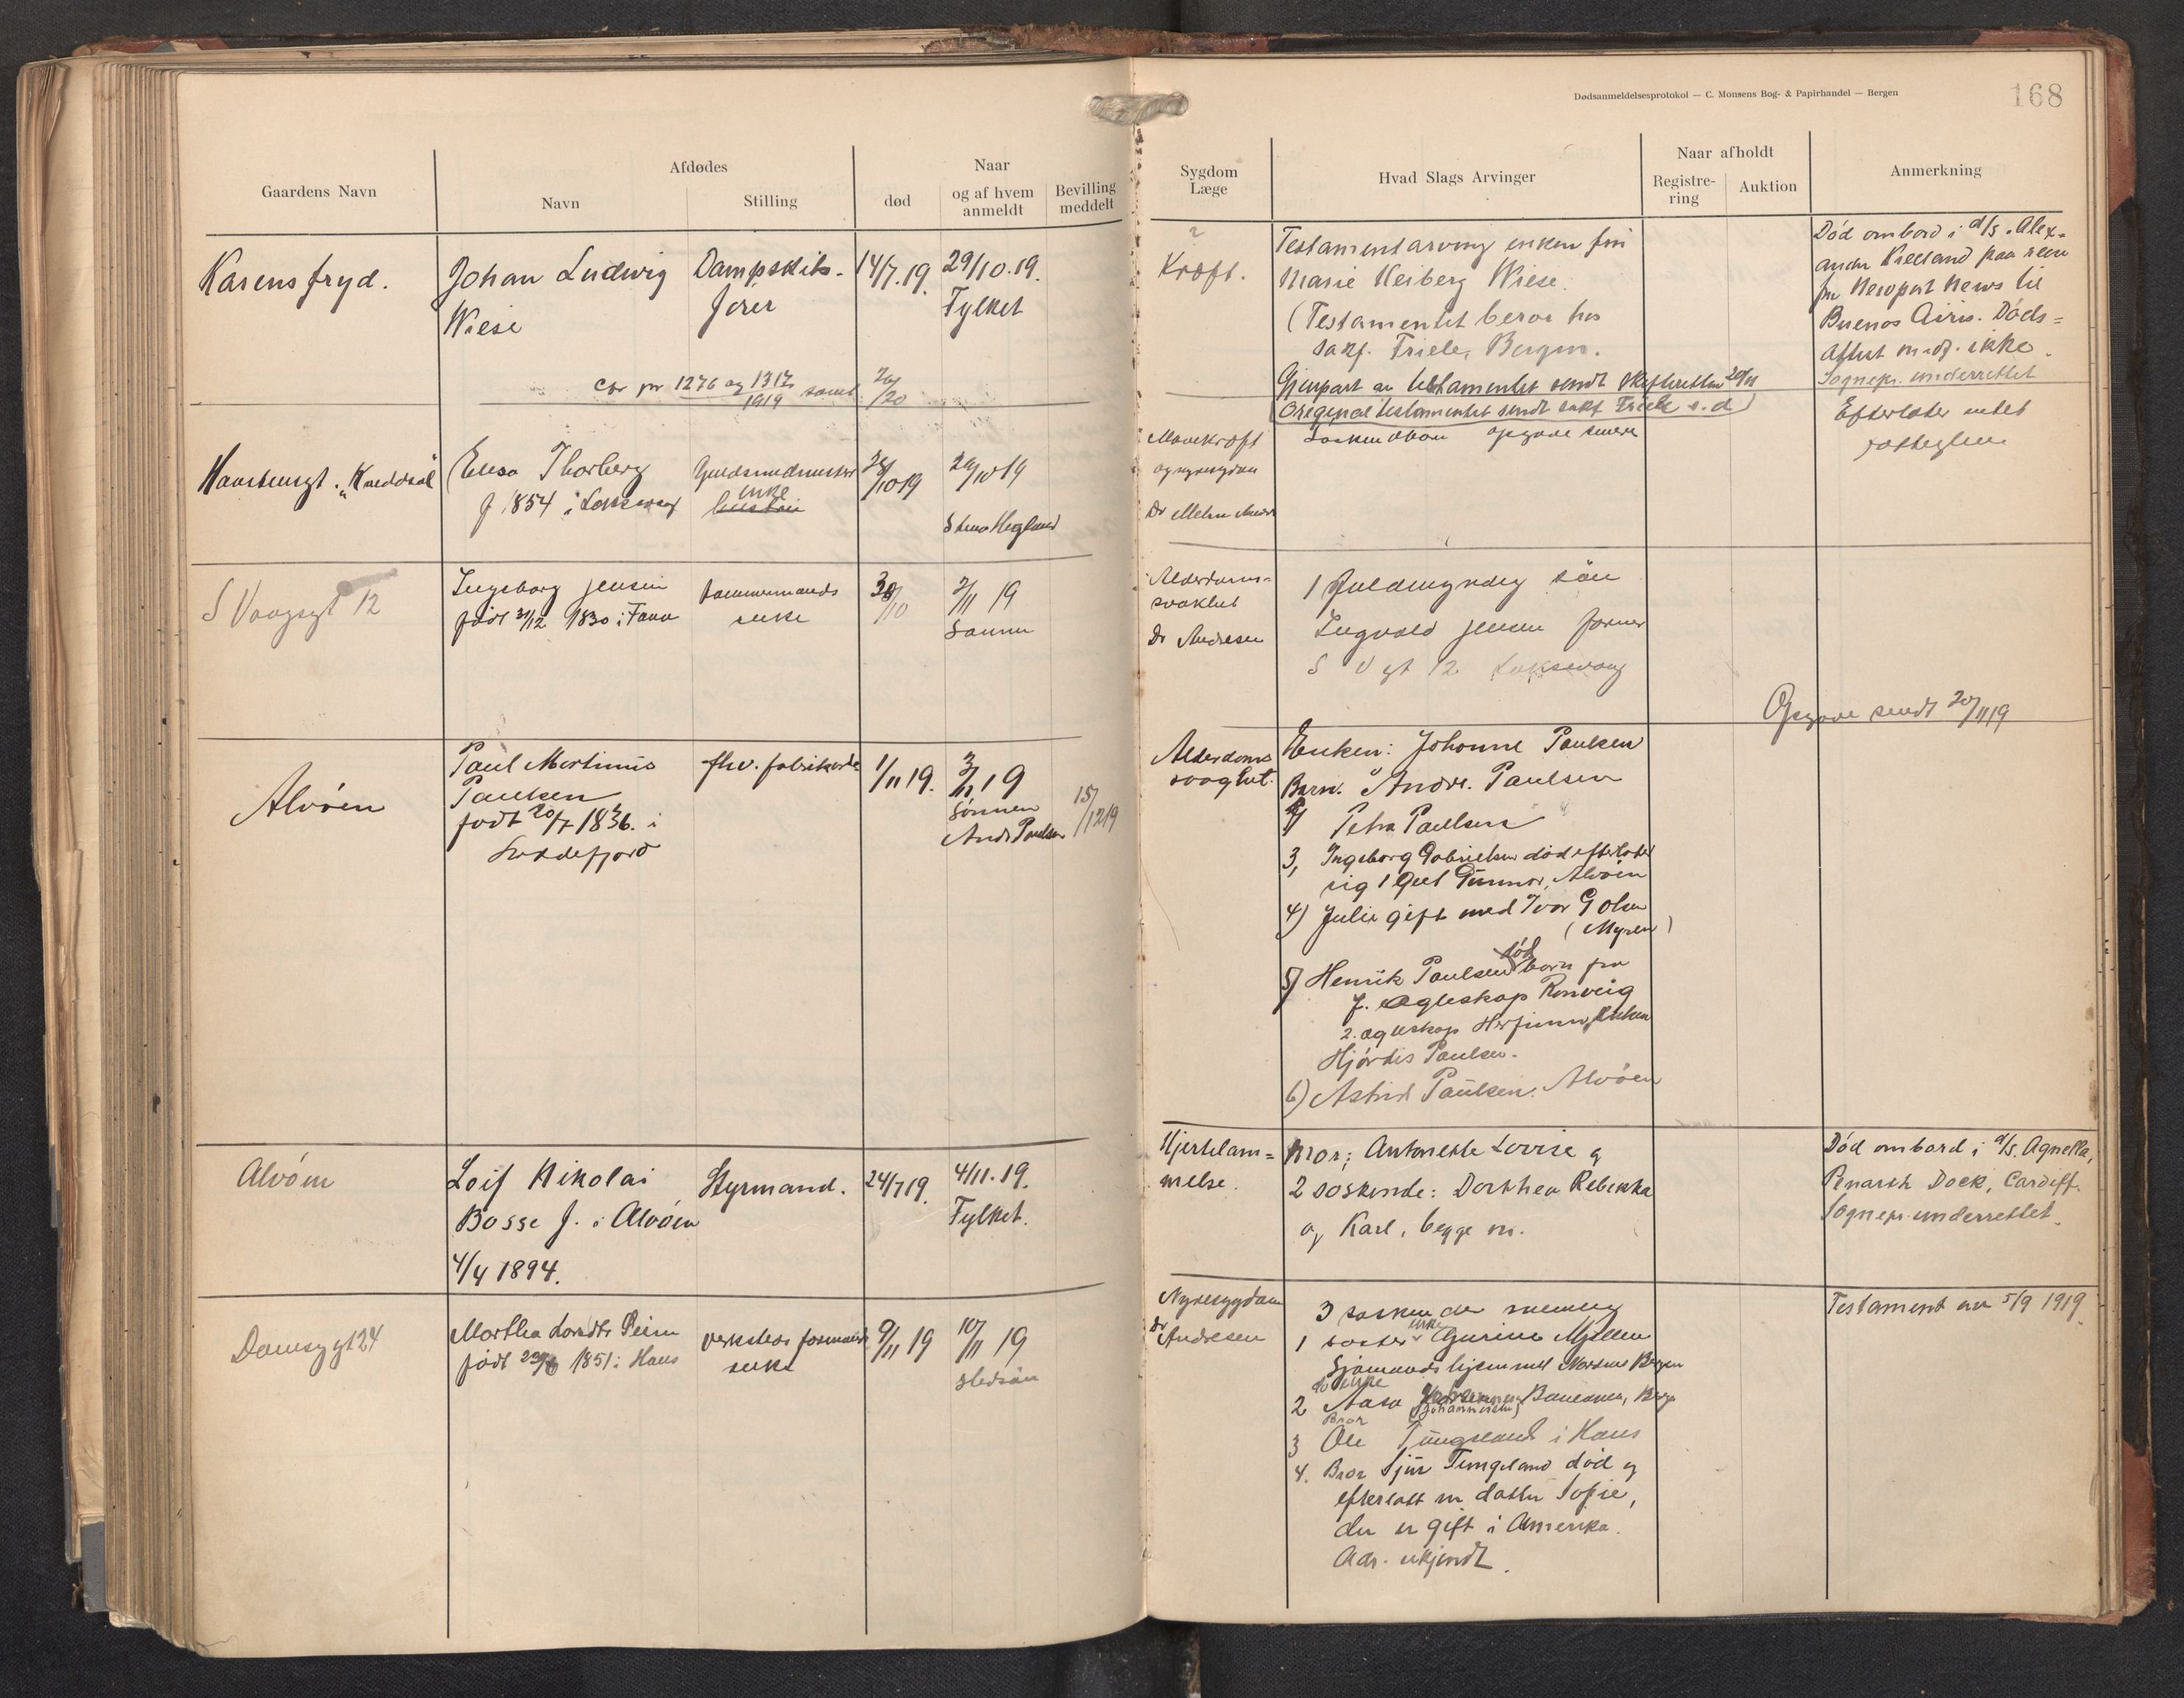 Dødsanmeldelsesprotokol — C. Monsens Bog- & Papirhandel — Bergen
168
Gaardens Navn
Afdødes
Navn
Stilling
død
Naar
og af hvem
anmeldt
Bevilling
meddelt
Sygdom
Læge
Hvad Slags Arvinger
Naar afholdt
Registre-
ring
Auktion
Anmerkning
Karensfryd.
Johan Ludwig
Wiese
Dampskibs-
fører
14/7.19.
29/10.19.
Fylket
1276 og 1317
1919
Kræft.
Testamentarving enken fru
Marie Heiberg Wiese.
(Testamentet beror hos
sakf. Friele, Bergen.
Gjenpart av testamentet sendt skifteretten 20/11
(Originaltestamentet sendt sakf. Friele s.d)
Død ombord i d/s. Alex-
ander Kielland paa reise
fra Newport News til
Buenos Aires. Døds=
attest medf. ikke.
Sognepr. underrettet
Elisa Thorberg
f 1854 i Laksevaag
Guldsmedmester
enke
/10 19
/10 19
Mavekræft
og nyresygdom
Dr
opgave senere
Efterlater intet
S Vaagsgt 12
Ingeborg Jensen
født 31/12 1830 i Fana
tømmermands
enke
30/10
2/11 19
Sønnen
Alderdoms-
svakhet
Dr Andresen
1 fuldmyndig søn
Ingvald Jensen former
S V gt 12 Laksevaag
Opgave sendt 20/11 19
Alvøen
Paul Martinus
Paulsen
født 20/7 1836. i
fhv. fabrikarb
1/11 19.
3/11 19
Sønnen
Andr Paulsen
15/12 19
Alderdoms
svaghet.
Enken: Johanne Paulsen
Barn. Andr. Paulsen
Petra Paulsen
3, Ingeborg Gabrielsen død efterlater
sig 1 Gut Gunnar, Alvøen
4) Julie gift med Ivar G Olsen
(Myren)
død
5) Henrik Paulsen barn fra
f. ægteskap Ronveig
2. ægteskap Herfinn, Enken
Hjørdis Paulsen.
6) Astrid Paulsen. Alvøen
Alvøen
Leif Nikolai
Bosse f. i Alvøen
4/4 1894.
Styrmand.
24/7 19.
4/11.19.
Fylket.
Hjertelam=
melse.
Mor; Antonette Lovise og
2 søskende: Dorthea Rebekka
og Karl, begge m.
Død ombord i d/s. Agnella,
Penarth Dock, Cardiff.
Sognepr. underrettet.
Damsgt 24
Martha
født 29/6 1851 i Haus
verksteds formands
enke
9/11 19
10/11 19
Stedsøn
Nyresygdom
Dr
Andresen
3 søskende
enke
1 søster Gurine
Sjømandshjemmet Nordnes Bergen
do enke
2 Aasa
Johannesen)
Bergen
Bror
3 Ole Tungeland i Haus
4. Bror Sjur Tungeland død og
efterlatt en datter Sofie,
der er gift i Amerika.
Adr. ukjendt.
Testament av 5/9 1919.